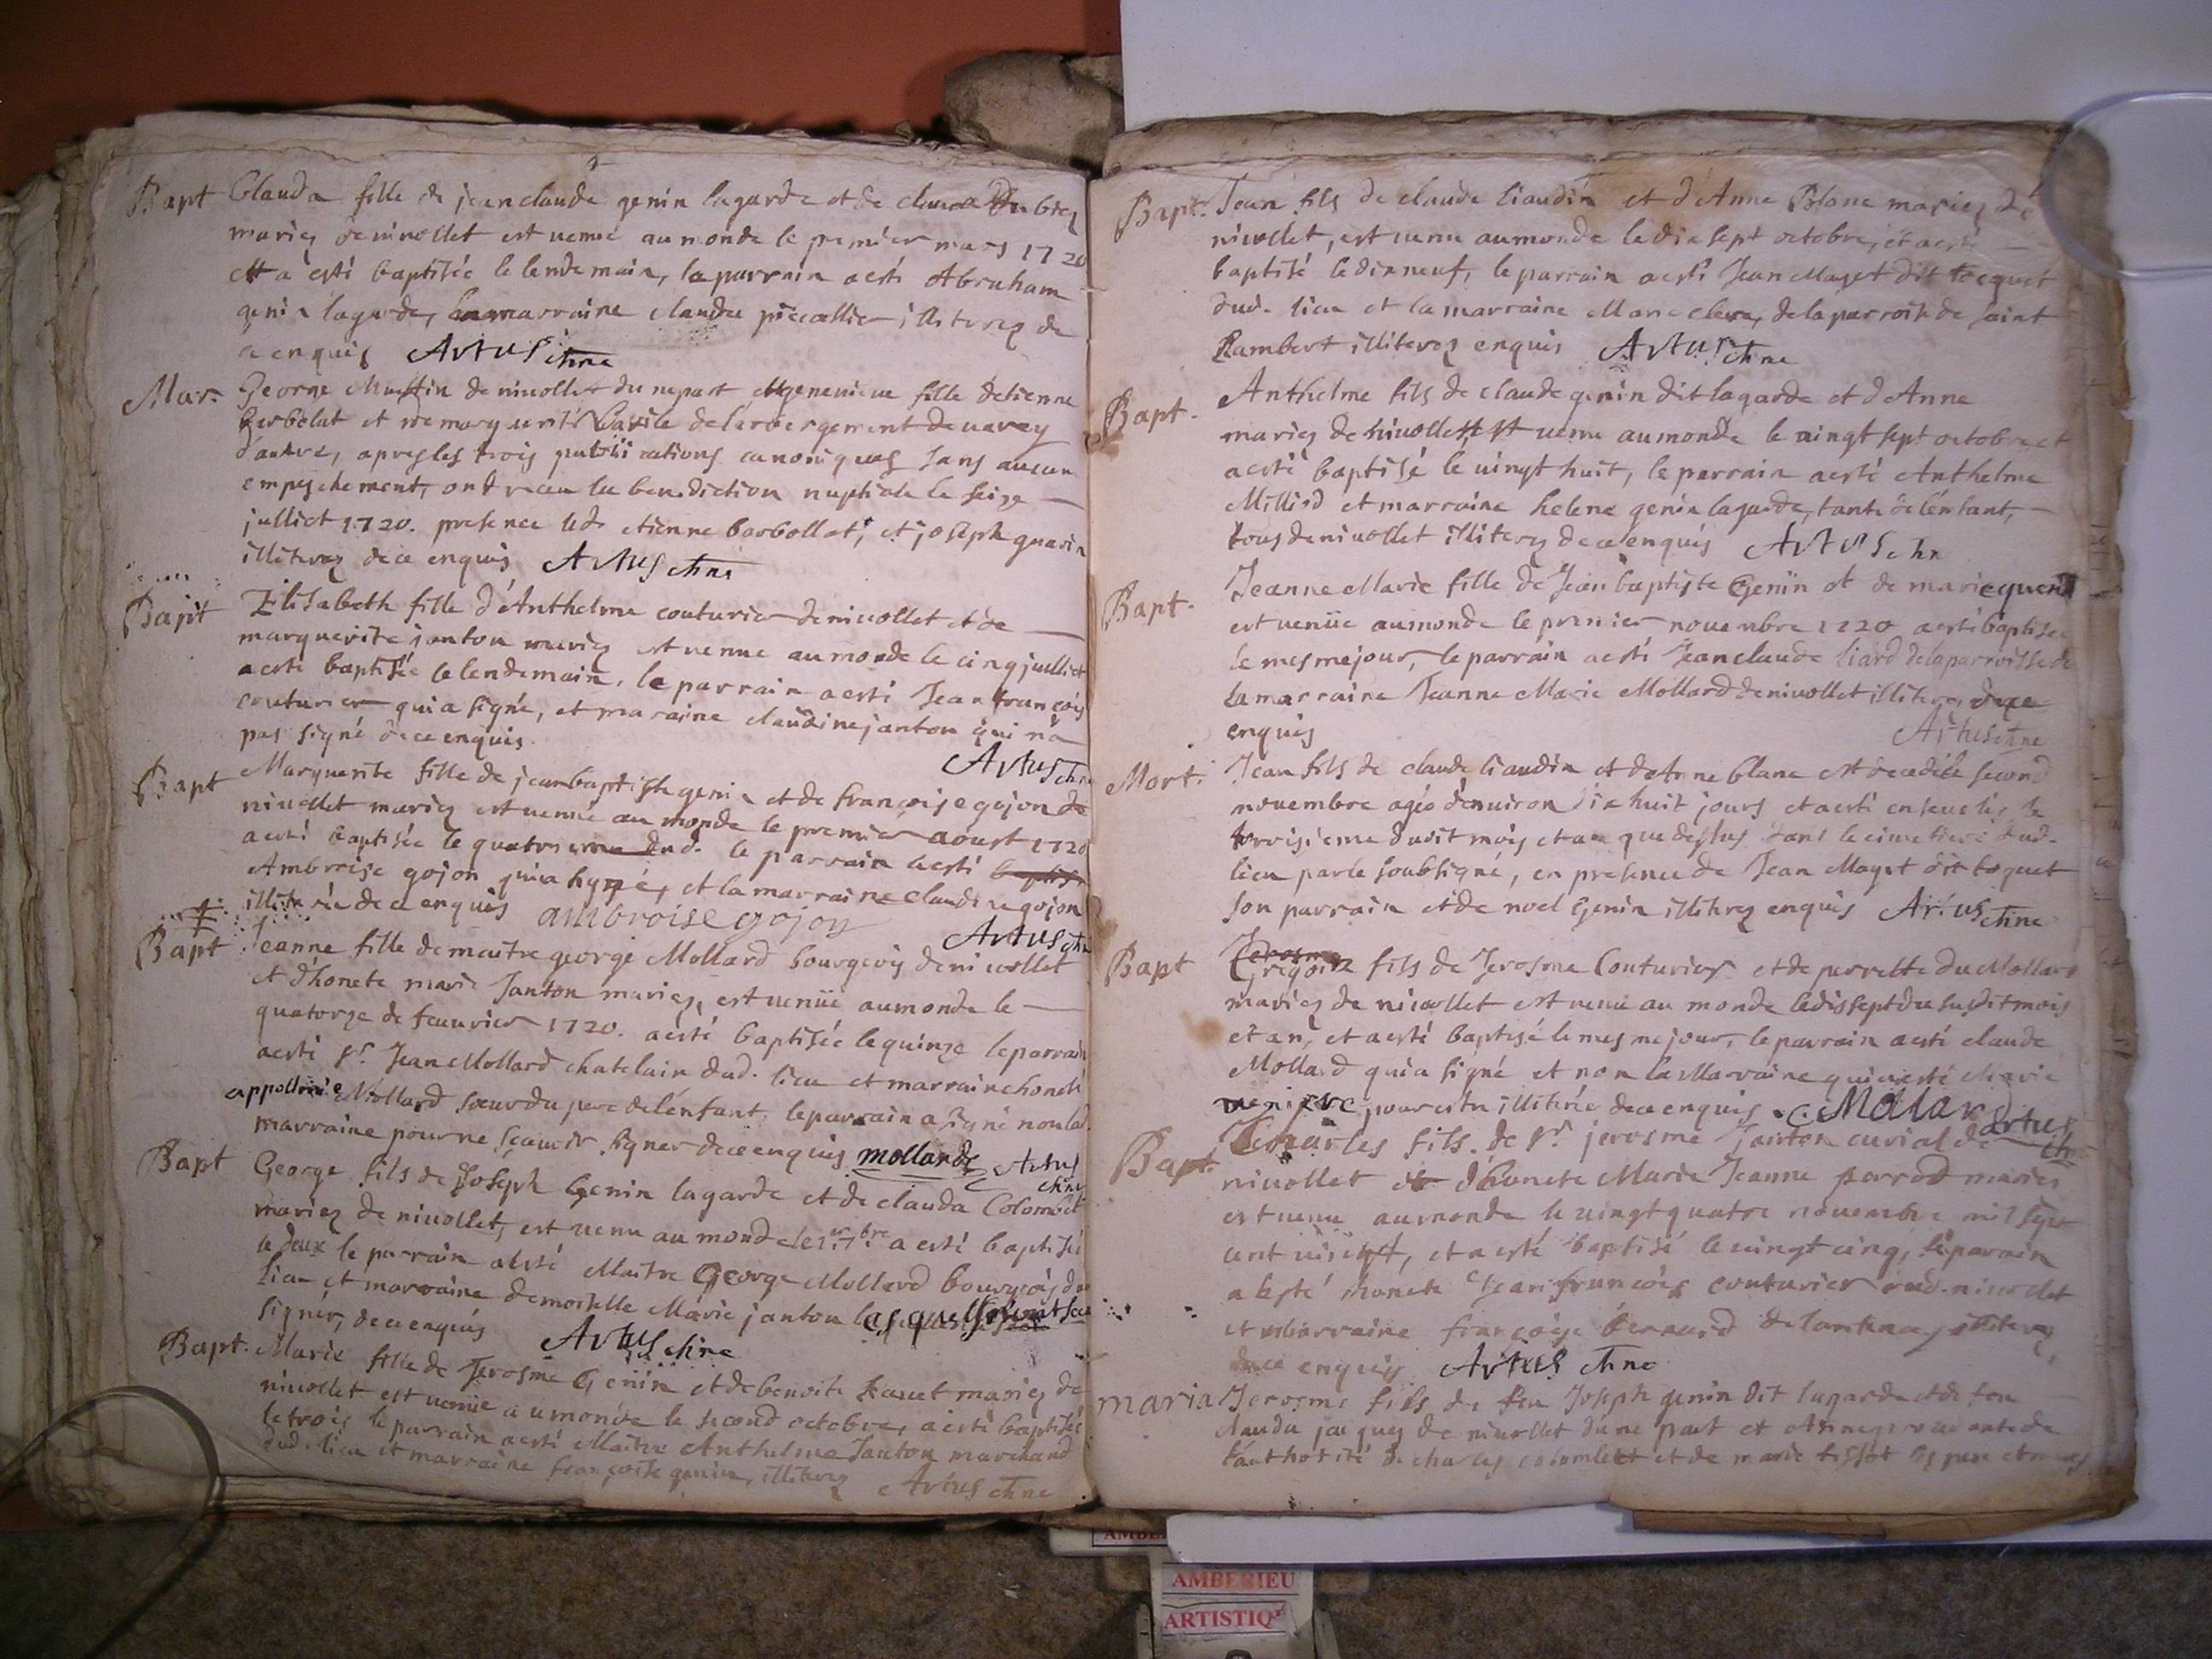 Bapt Clauda fille de jean claude genin lagarde et de clauda Dubiez
mariez de nivollet est venue au monde le premier mars 1720
et a esté baptisée le lendemain, le parrain a esté Abraham
genin lagarde, la marraine claudee illiterez de
ce enquis Artus chne
Mar. George Martin de nivollet du ne part et genevieve fille detienne
Barbolat et de marguerite de l'abergement de varey
d'autre, apres les trois publications canoniques sans aucun
empeschement, ont receu la benediction nuptiale le seize
julliet 1720. presence led. etienne barbollat, et joseph guerin
illiterez de ce enquis Artus chne
Bapt Elisabeth fille d'Anthelme couturier de nivollet et de
marguerite janton mariez est venue au monde le cinq julliet
a esté baptisée le lendemain, le parrain a esté Jean françois
couturier qui a signé, et maraine claudine janton qui n'a
pas signé de ce enquis.
Artus chne
Bapt Marguerite fille de jean baptiste genin et de françoise gojon de
nivollet mariez est venue au monde le premier aoust 1720
a esté baptisée le quatrieme dud. le parrain a esté baptisé
Ambroise gojon qui a signé, et la marraine claudine gojon
illiterée de ce enquis ambroise gojon
Artus chne
Bapt Jeanne fille de maitre george Mollard bourgeois de nivollet
et d'honete marie Janton mariez, est venüe au monde le
quatorze de feuvrier 1720. a esté baptisée le quinze le parrain
a esté Sr. Jean Mollard chatelain dud. lieu et marraine honete
appollonie Mollard soeur du pere de l'énfant, le parrain a signé non la
marraine pour ne sçavoir signer de ce enquis mollard Artus
chne
Bapt George fils de Joseph Genin lagarde et de clauda Colombet
mariez de nivollet, est venu au monde le 1er 7bre a esté baptisé
le deux le parrain a esté Maitre George Mollard bourgeois dud
lieu et marraine demoiselle Marie janton lesquels
signer, de ce enquis Artus chne
Bapt. Marie fille de Jerosme Genin et de benoite mariez de
nivollet est venüe au monde le second octobre, a esté baptisée
le trois le parrain a esté Maitre Anthelme Janton marchand
dud. lieu et marraine françoise genin, illiterez Artus chne
Bapt. Jean fils de claude liaudin et d'Anne Blanc mariez de
nivollet, est venu au monde le dix sept octobre, et a esté
baptisé le dix neuf, le parrain a esté Jean Maget dit toquet
dud. lieu et la marraine Marie clere, de la parroise de saint
Rambert illiterez enquis Artus chne
Bapt. Anthelme fils de claude genin dit lagarde et d'Anne
mariez de nivollet est venu au monde le vingt sept octobre et
a esté baptisé le vingt huit, le parrain a esté Anthelme
Milliod et marraine helene genin lagarde, tante de l'énfant,
tous de nivollet illiterez de ce enquis Artus chn
Bapt. Jeanne Marie fille de Jean baptiste Genin et de marie
est venüe au monde le premier novembre 1720 a esté baptisée
le mesme jour, le parrain a esté Jean claude liard de la parroisse de
la marraine Jeanne Marie Mollard de nivollet illiterez de ce
enquis
Artus chne
Mort. Jean fils de claude liaudin et d'Anne blanc est decedé le second
novembre agé d'environ dix huit jours et a esté enseveli le
troisieme dudit mois et an que dessus dans le cimetiere dud.
lieu par le soubsigné, en presence de Jean Maget dit toquet
son parrain et de noel Genin illiterez enquis Artus chne
Bapt Jerosme
Gregoire fils de Jerosme Couturier et de perrette du Mollard
mariez de nivollet est venu au monde le dissept du susdit mois
et an, et a esté baptisé le mesme jour, le parrain a esté claude
Mollard qui a signé et non la Marraine qui a esté Marie
pour estre illiterée de ce enquis. C. Molard Artus
chn
Bapt. Charles fils de Sr. jerosme janton curial de
nivollet et d'honete Marie Jeanne parrod mariez
est venu au monde le vingt quatre novembre mil sept
cent vingt, et a esté baptisé le vingt cinq, le parrain
a esté honete Jean françois couturier dud. nivollet
et marraine françoise bernard de lantenay illiterez
de ce enquis Artus chne
maria Jerosme fils de feu Joseph genin dit lagarde et de feu
clauda jaques de nivollet d'une part et Anne de
l'authorité de charles colombet et de marie tissot ses pere et mere
AMBERIEU
ARTISTIQ